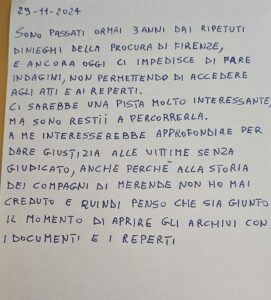 29-11-2024
SONO PASSATI ORMAI 3 ANNI DAI RIPETUTI
DINIEGHI DELLA PROCURA DI FIRENZE,
E ANCORA OGGI CI IMPEDISCE DI FARE
INDAGINI, NON PERMETTENDO DI ACCEDERE
AGLI ATTI E AI REPERTI.
CI SAREBBE UNA PISTA MOLTO INTERESSANTE,
MA SONO RESTII A PERCORRERLA.
A ME INTERESSEREBBE APPROFONDIRE PER
DARE GIUSTIZIA ALLE VITTIME SENZA
GIUDICATO, ANCHE PERCHÈ ALLA STORIA
DEI COMPAGNI DI MERENDE NON HO MAI
CREDUTO E QUINDI PENSO CHE SIA GIUNTO
IL MOMENTO DI APRIRE GLI ARCHIVI CON
I DOCUMENTI E I REPERTI